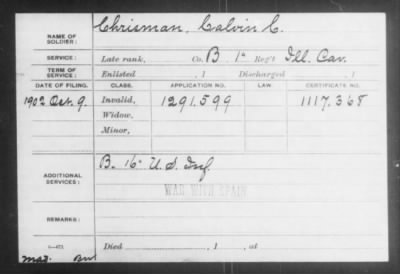 NAME OF SOLDIER: Chrisman, Calvin C.
SERVICE: Late rank, Co. B. 1" Reg't Ill. Cav.
TERM OF SERVICE: Enlisted , 1 Discharged , 1
DATE OF FILING. CLASS. APPLICATION NO. LAW. CERTIFICATE NO.
1902 Oct. 9. Invalid, 1291.599 1117.368
Widow,
Minor,
ADDITIONAL SERVICES: B. 16" U.S. Inf.
WAR WITH SPAIN
REMARKS:
Died , 1 , at